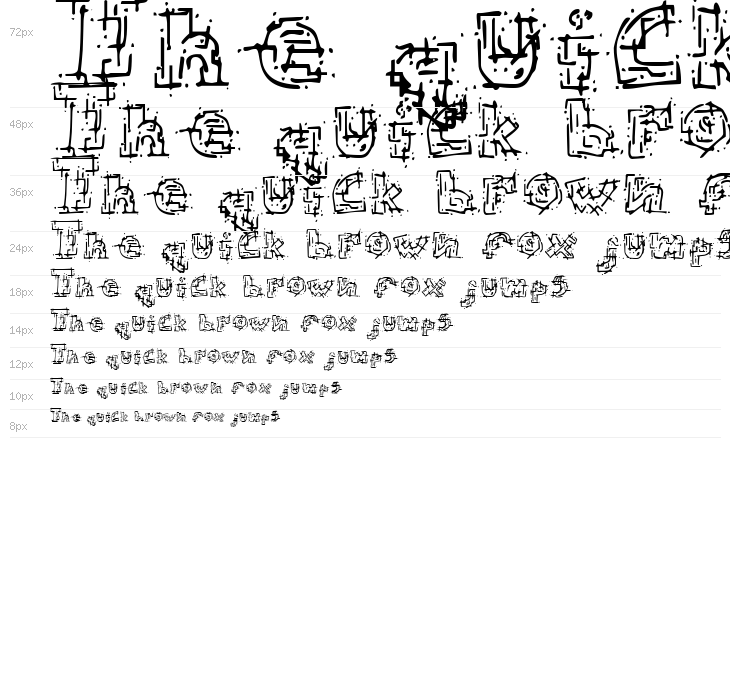 72px The quick
48px The quick bro
36px The quick brown f
24px The quick brown fox jumps
18px The quick brown fox jumps
14px The quick brown fox jumps
12px The quick brown fox jumps
10px The quick brown fox jumps
8px The quick brown fox jumps